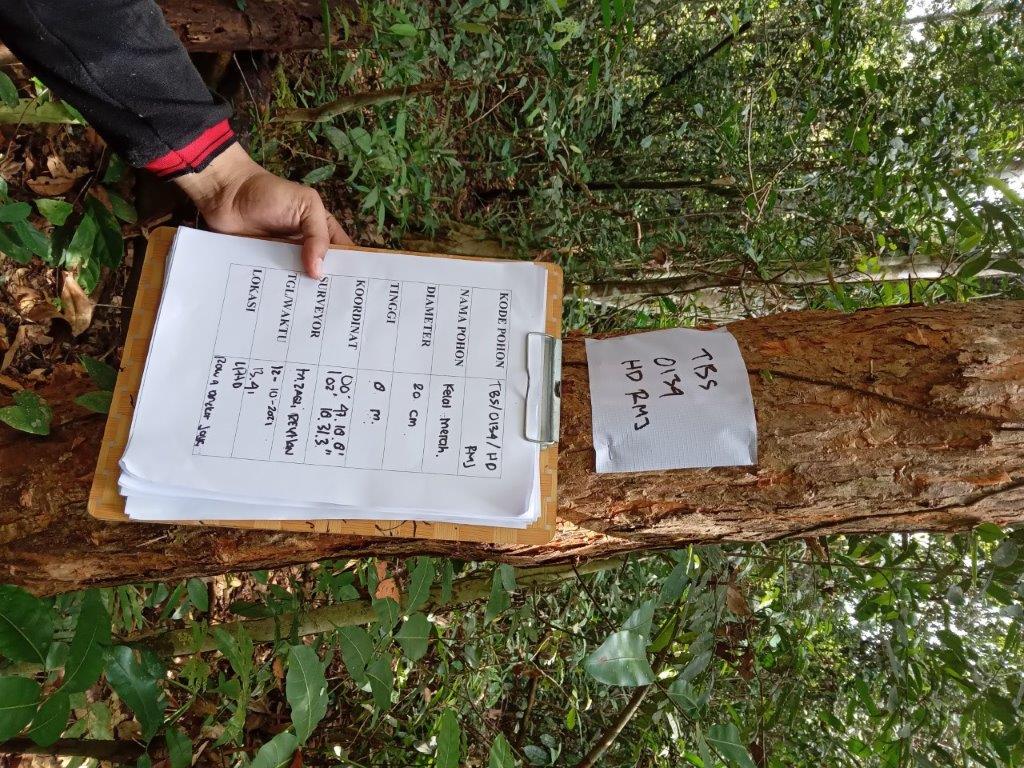 TBS
0134
HD RMJ
KODE POHON TBS/0134/HD
RMJ
NAMA POHON Kelat Merah.
DIAMETER 20 cm
TINGGI 8 m.
KOORDINAT 00°
102° 10.31.3"
SURVEYOR M.ZAQI
TGL/WAKTU 12-10-2021
13.41
LOKASI LPHD